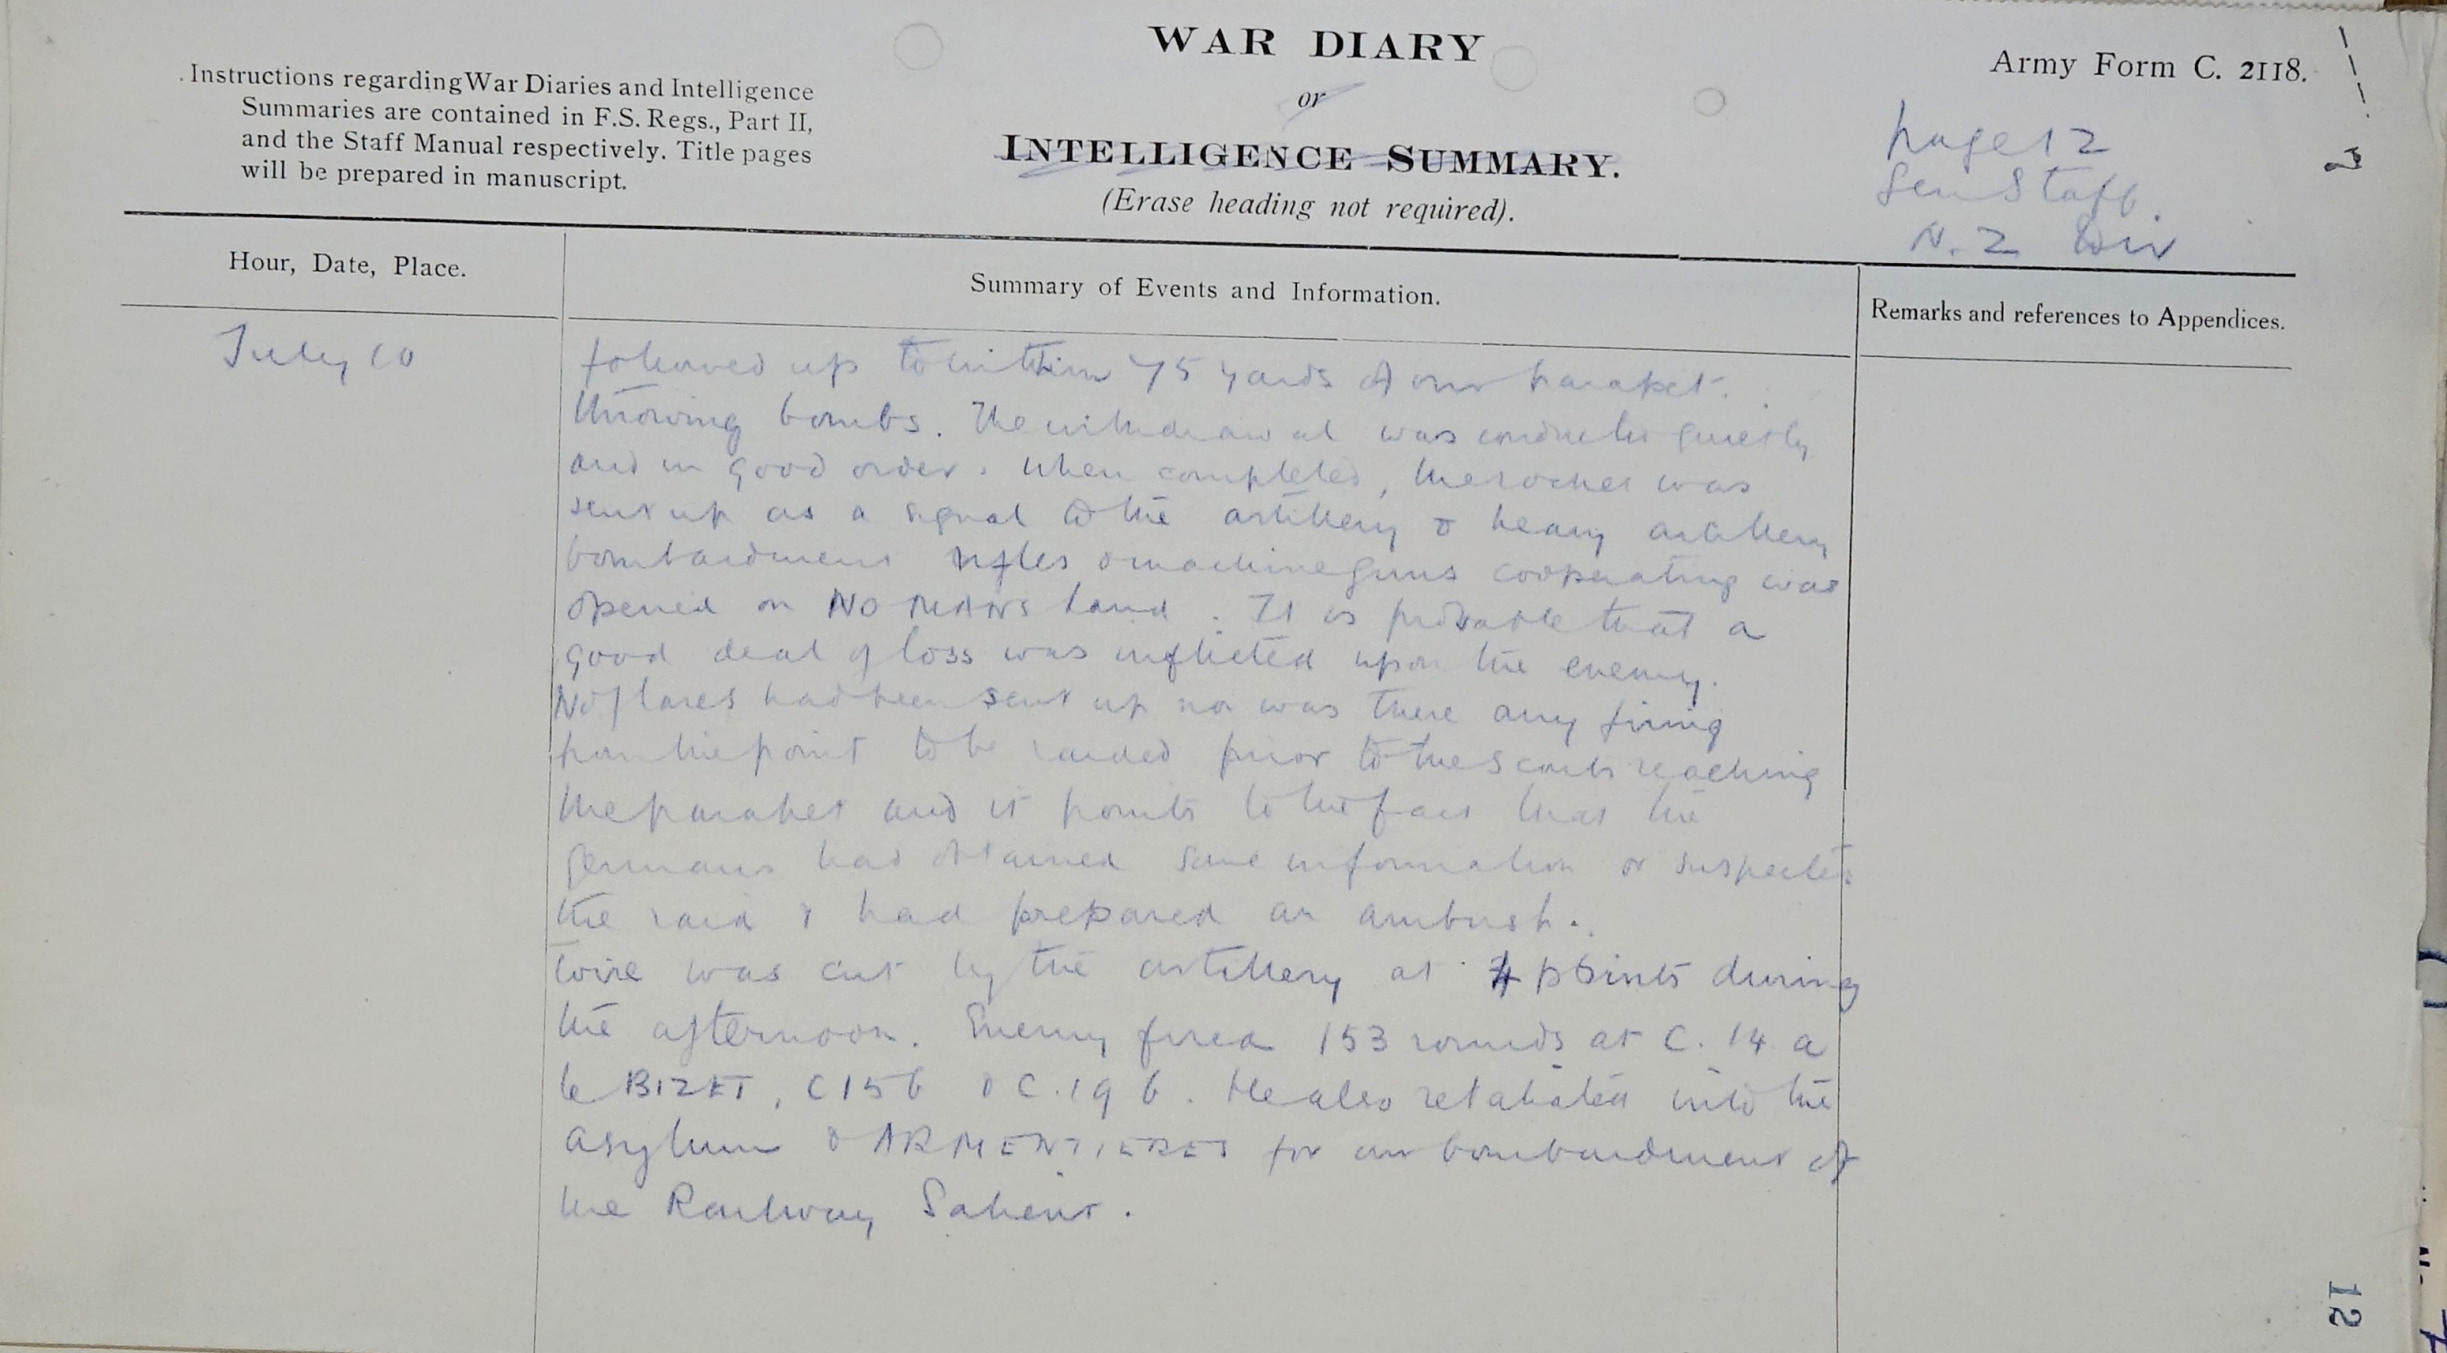 WAR DIARY
or
INTELLIGENCE SUMMARY.
(Erase heading not required).
Instructions regarding War Diaries and Intelligence
Summaries are contained in F.S. Regs., Part II,
and the Staff Manual respectively. Title pages
will be prepared in manuscript.
Army Form C. 2118.
page 12
Gen Staff.
N.Z Div
Hour, Date, Place.
Summary of Events and Information.
Remarks and references to Appendices.
July 10
followed up to within 75 yards of our parapet.
throwing bombs. The withdrawal was conducted quietly
and in good order. When completed, the rocket was
sent up as a signal to the artillery & heavy artillery
bombardment rifles & machine guns cooperating was
opened on NO MANS land. It is probable that a
good deal of loss was inflicted upon the enemy.
No flares had been sent up nor was there any firing
from the point to be raided prior to the scouts reaching
the parapet and it points to the fact that the
Germans had obtained some information or suspected
the raid & had prepared an ambush.
Wire was cut by the artillery at 4 points during
the afternoon. Enemy fired 153 rounds at C. 14 a
le BIZET, C15 b & C.19 b. He also retaliated into the
asylum & ARMENTIERES for our bombardment of
the Railway Salient.
12